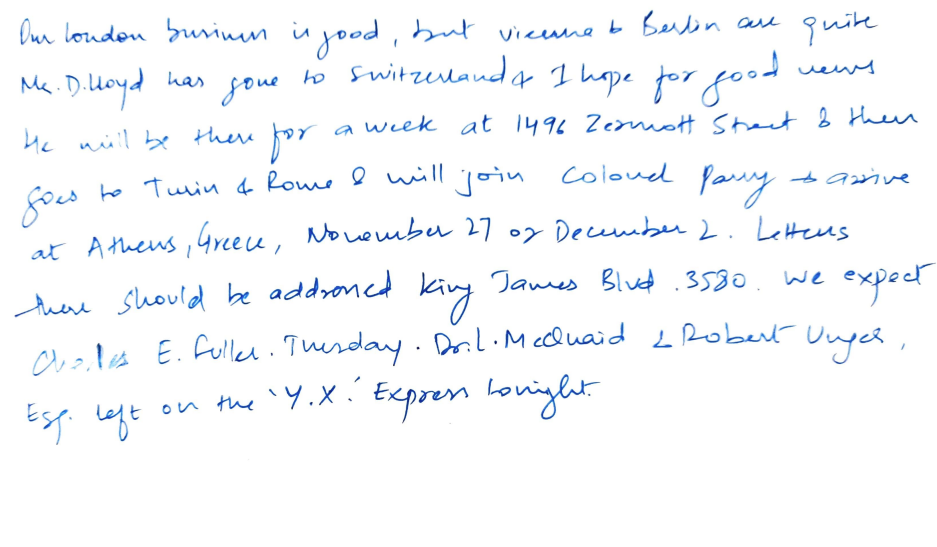 Our London business is good, but vienna & Berlin are quite
Mr. D. Lloyd has gone to Switzerland & I hope for good news
He will be there for a week at 1496 Zermott Street & then
goes to Turin & Rome & will join Colonel Parry & arrive
at Athens, Greece, November 27 or December 2. Letters
there should be addressed king James Blvd. 3580. We expect
Charles E. Fuller. Tuesday. Dr. L. McQuaid & Robert Unger,
Esq. left on the 'Y.X.' Express tonight.